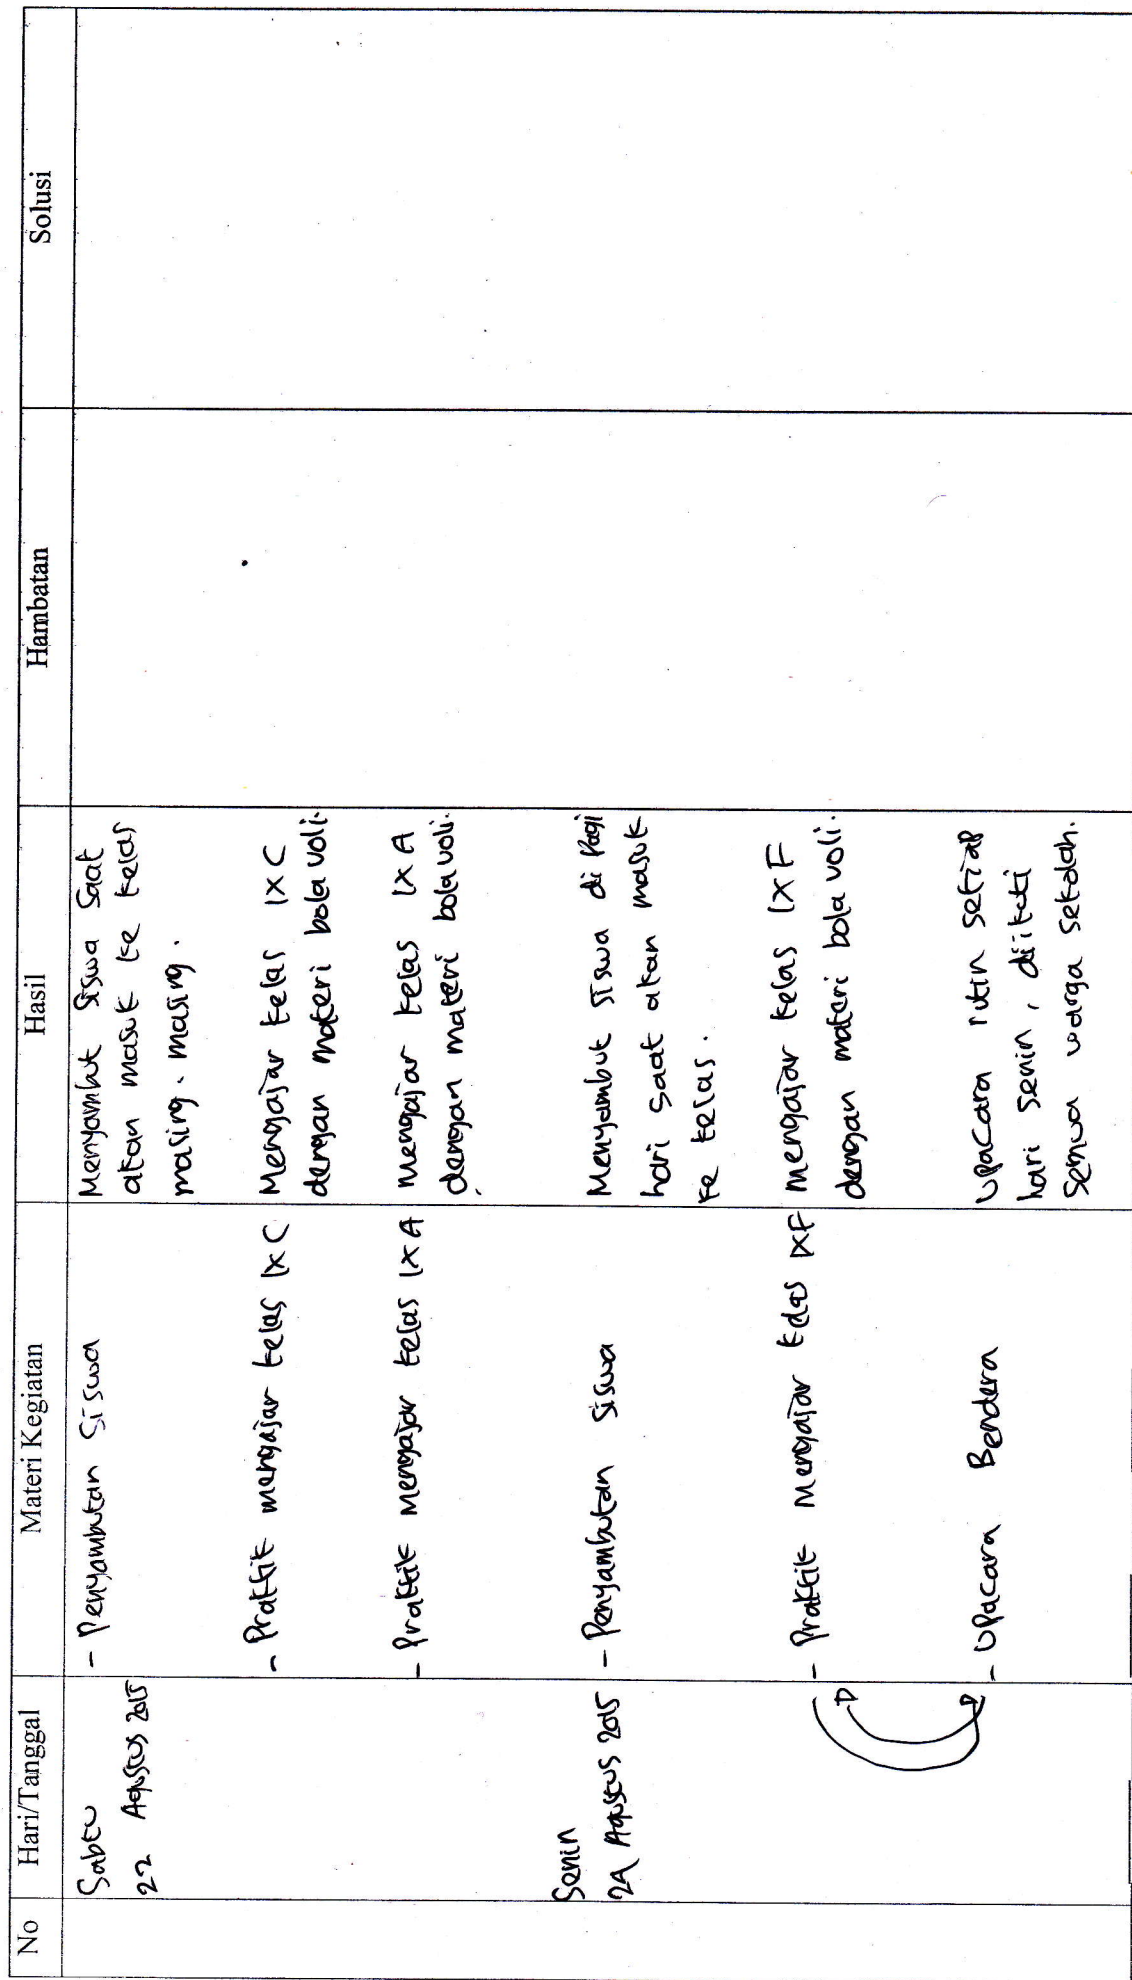 No Hari/Tanggal Materi Kegiatan Hasil Hambatan Solusi
Sabtu
22 Agustus 2015
- Penyambutan Siswa
Menyambut siswa saat
akan masuk ke kelas
masing-masing.
- Praktik mengajar kelas IX C
Mengajar kelas IX C
dengan materi bola voli.
- Praktik mengajar kelas IX A
mengajar kelas IX A
dengan materi bola voli.
Senin
24 Agustus 2015
- Penyambutan Siswa
Menyambut siswa di pagi
hari saat akan masuk
ke kelas.
- Praktik mengajar kelas IX F
mengajar kelas IX F
dengan materi bola voli.
- Upacara Bendera
Upacara rutin setiap
hari senin, diikuti
semua warga sekolah.